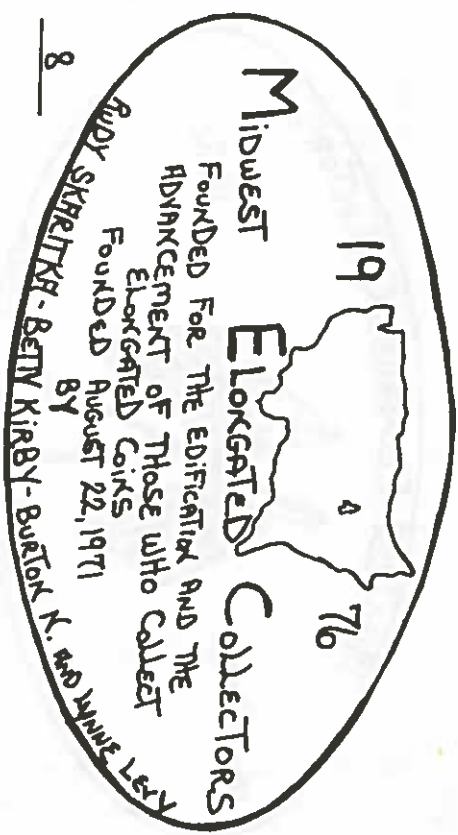 19 76
MIDWEST ELONGATED COLLECTORS
FOUNDED FOR THE EDIFICATION AND THE
ADVANCEMENT OF THOSE WHO COLLECT
ELONGATED COINS
FOUNDED AUGUST 22, 1971
BY
RUDY SKARITKA - BETTY KIRBY - BURTON N. AND LYNNE LEVY
8